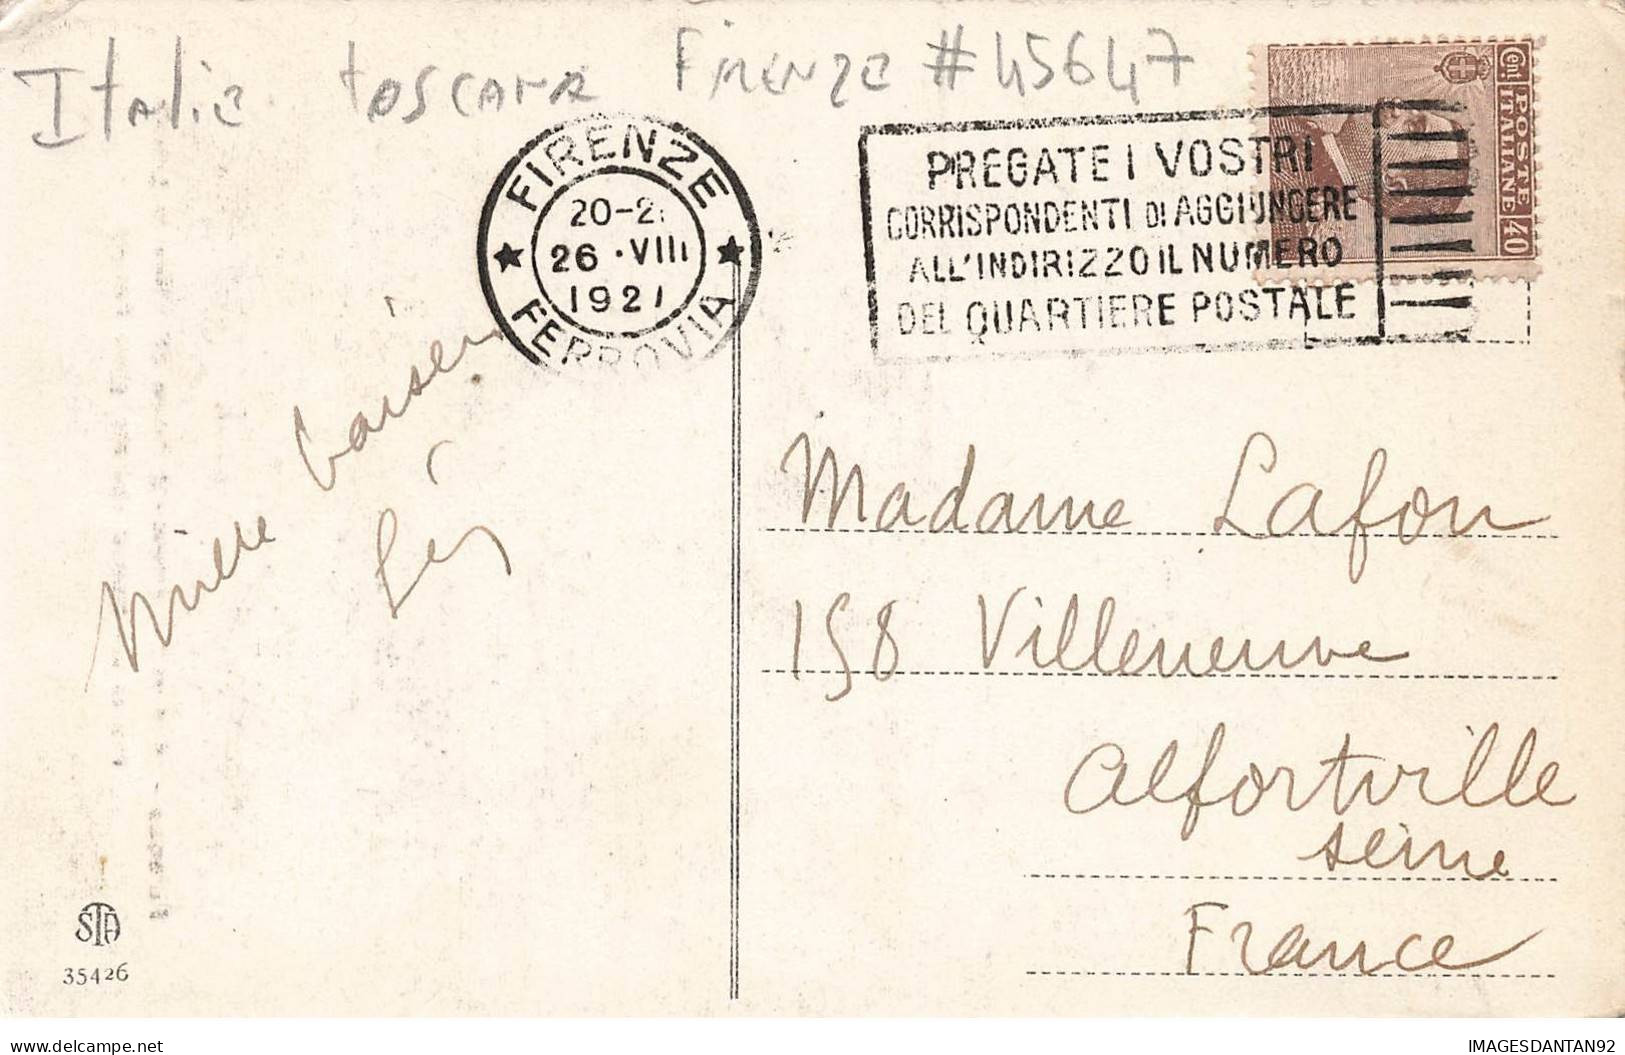 Italie toscana Firenze #45647
FIRENZE
20-2
26 ·VIII
1921
FERROVIA
PREGATE I VOSTRI
CORRISPONDENTI DI AGGIUNGERE
ALL'INDIRIZZO IL NUMERO
DEL QUARTIERE POSTALE
Cent. 40
POSTE
ITALIANE
Mille baisers
Madame Lafon
158 Villeneuve
Alfortville
Seine
France
STA
35426
IMAGESDANTAN92
Delcampe.net